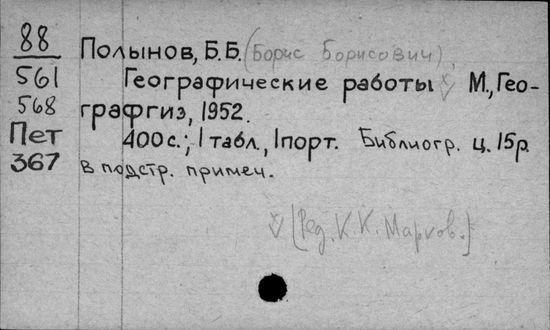 88
561
568
Пет
367
Полынов, Б.Б. (Борис Борисович),
Географические работы М., Гео-
графгиз, 1952.
400 с.; 1 табл., 1 порт. Библиогр. ц. 15р.
в подстр. примеч.
[Ред. К.К. Марков.]